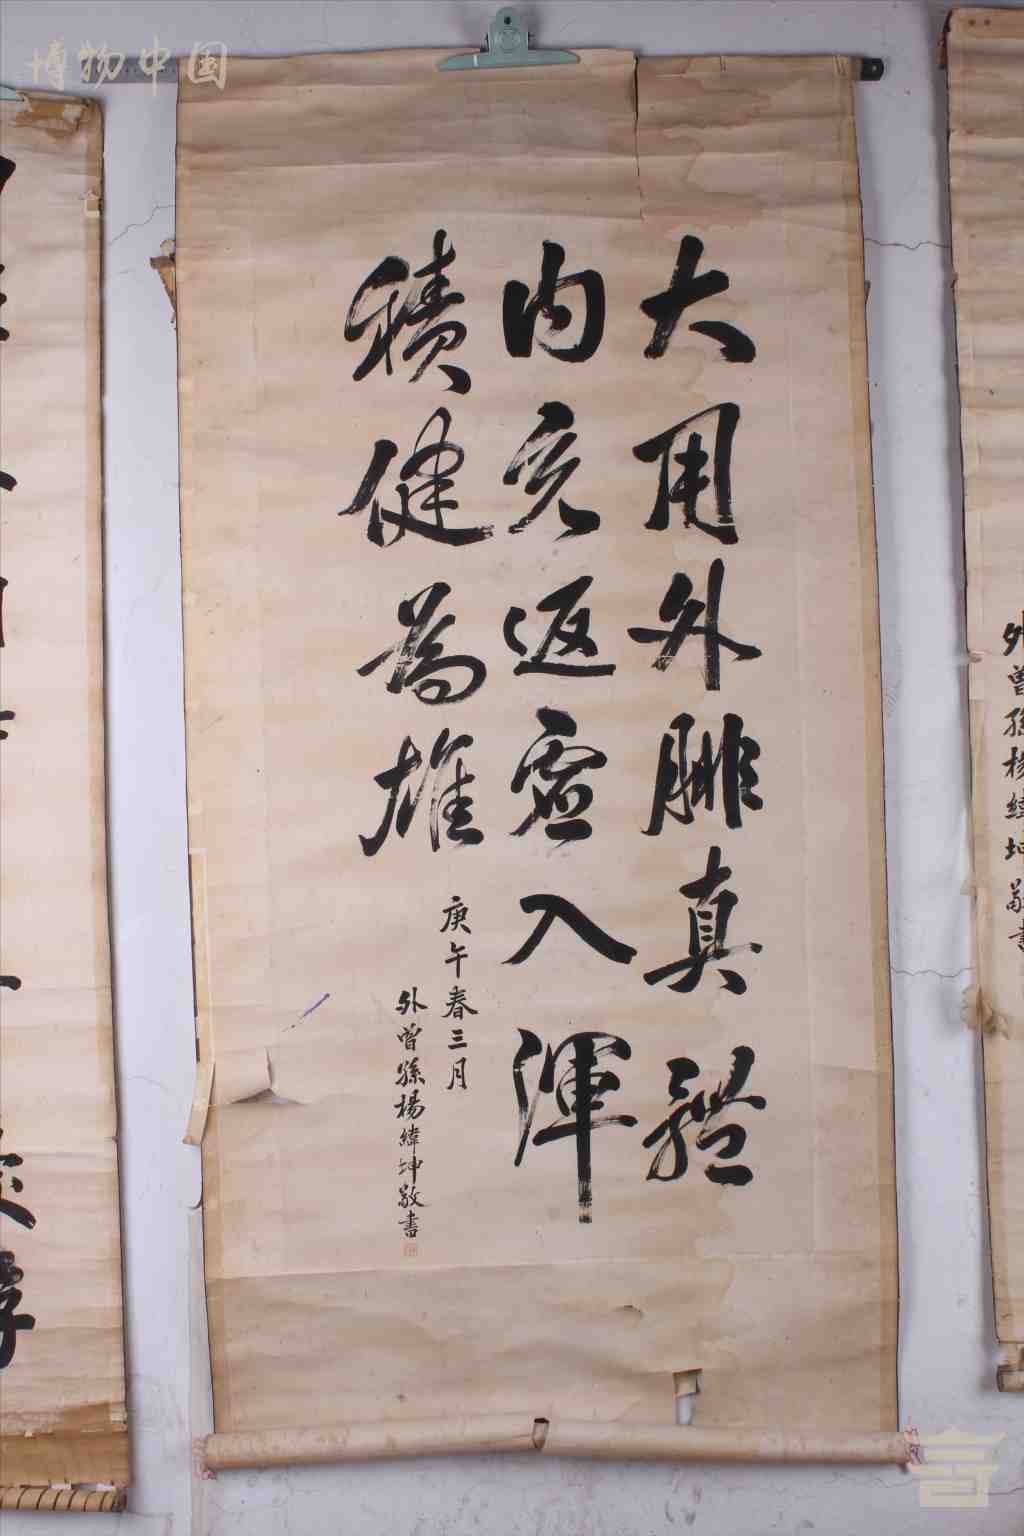 博物中国
大用外腓真體
内充返虚入渾
積健為雄
庚午春三月
外曾孫楊緯坤敬書
外曾孫楊緯坤敬書